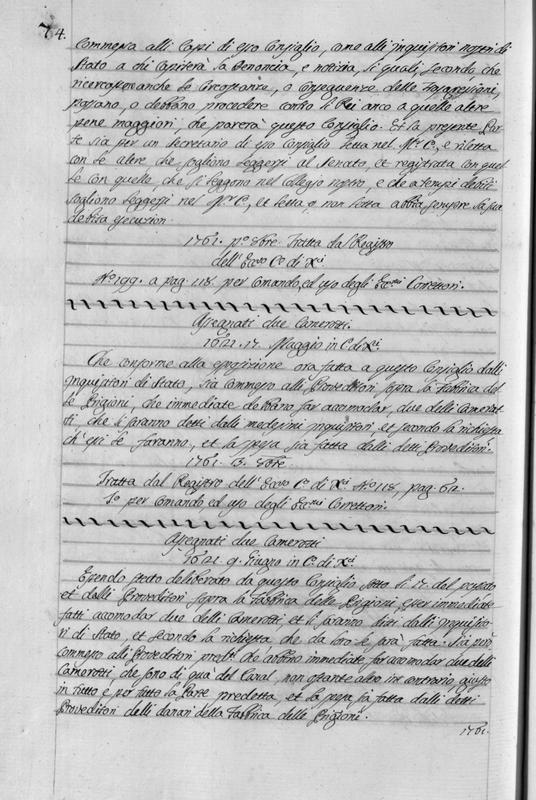 74.
commessa alli Capi di esso Consiglio, come alli Inquisitori nostri di
Stato a chi capiterà la denoncia, e notitia, li quali, secondo che
ricercassero anche le circostanze, o consequenze delle trasgressioni,
possano, o debbano procedere contro li Rei anco a quelle altre
pene maggiori, che parerà questo Consiglio. Et la presente Par-
te sia per un secretario di esso Consiglio letta nel M.r C.o, e riletta
con le altre che sogliono leggersi al Senato, et registrata con quel-
le con quelle, che si leggono nel Collegio nostro, e che a tempi debiti
sogliono leggersi nel M.r C.o, et letta, o non letta abbia sempre la sua
debita esecuzion.
1761. p.o 8bre. Tratta dal Registro
dell' Ecc.so C.o di X.ci
N.o 199. a pag. 118. per comando, ed uso degli Ecc.mi Correttori.
Assegnati due Camerotti.
1621. 17. Maggio in C.o di X.ci
Che conforme alla esposizione ora fatta a questo Consiglio dalli
Inquisitori di Stato, sia commesso alli Proveditori sopra la Fabbrica del-
le Prigioni, che immediate debbano far accomodar, due delli Camerot-
ti, che li saranno detti dalli medesimi Inquisitori, et secondo la richiesta
ch' essi le faranno, et la spesa sia fatta dalli detti Proveditori.
1761. 3. 8bre.
Tratta dal Registro dell' Ecc.so C.o di X.ci N.o 118, pag. 62.
T.o per comando ed uso degli Ecc.mi Correttori.
Assegnati due Camerotti
1621. 9. Giugno in C.o di X.ci
Essendo stato deliberato da questo Consiglio sotto li 17. del passato
et dalli Proveditori sopra la Fabbrica delle Prigioni, esser immediate
fatti accomodar due delli Camerotti, et li saranno diti dalli Inquisito-
ri di Stato, et secondo la richiesta che da loro le sarà fatta. Sia
commesso alli Proveditori pred.ti che debbino immediate far accomodar due delli
Camerotti, che sono di quà del Canal, non ostante altro in contrario, giusto
in tutto e per tutto la Parte predetta, et la spesa sia fatta dalli detti
Proveditori delli danari della Fabbrica delle Prigioni.
1761.